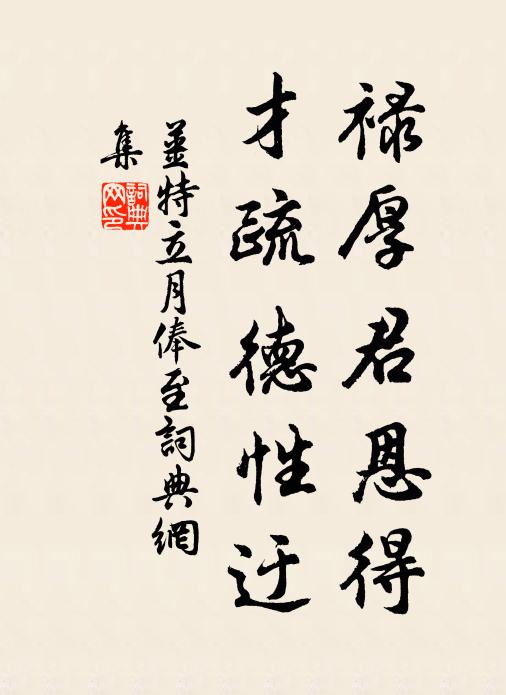 禄厚君恩得
才疏德性迂
姜特立月俸至詞典網
集
詞典
网印